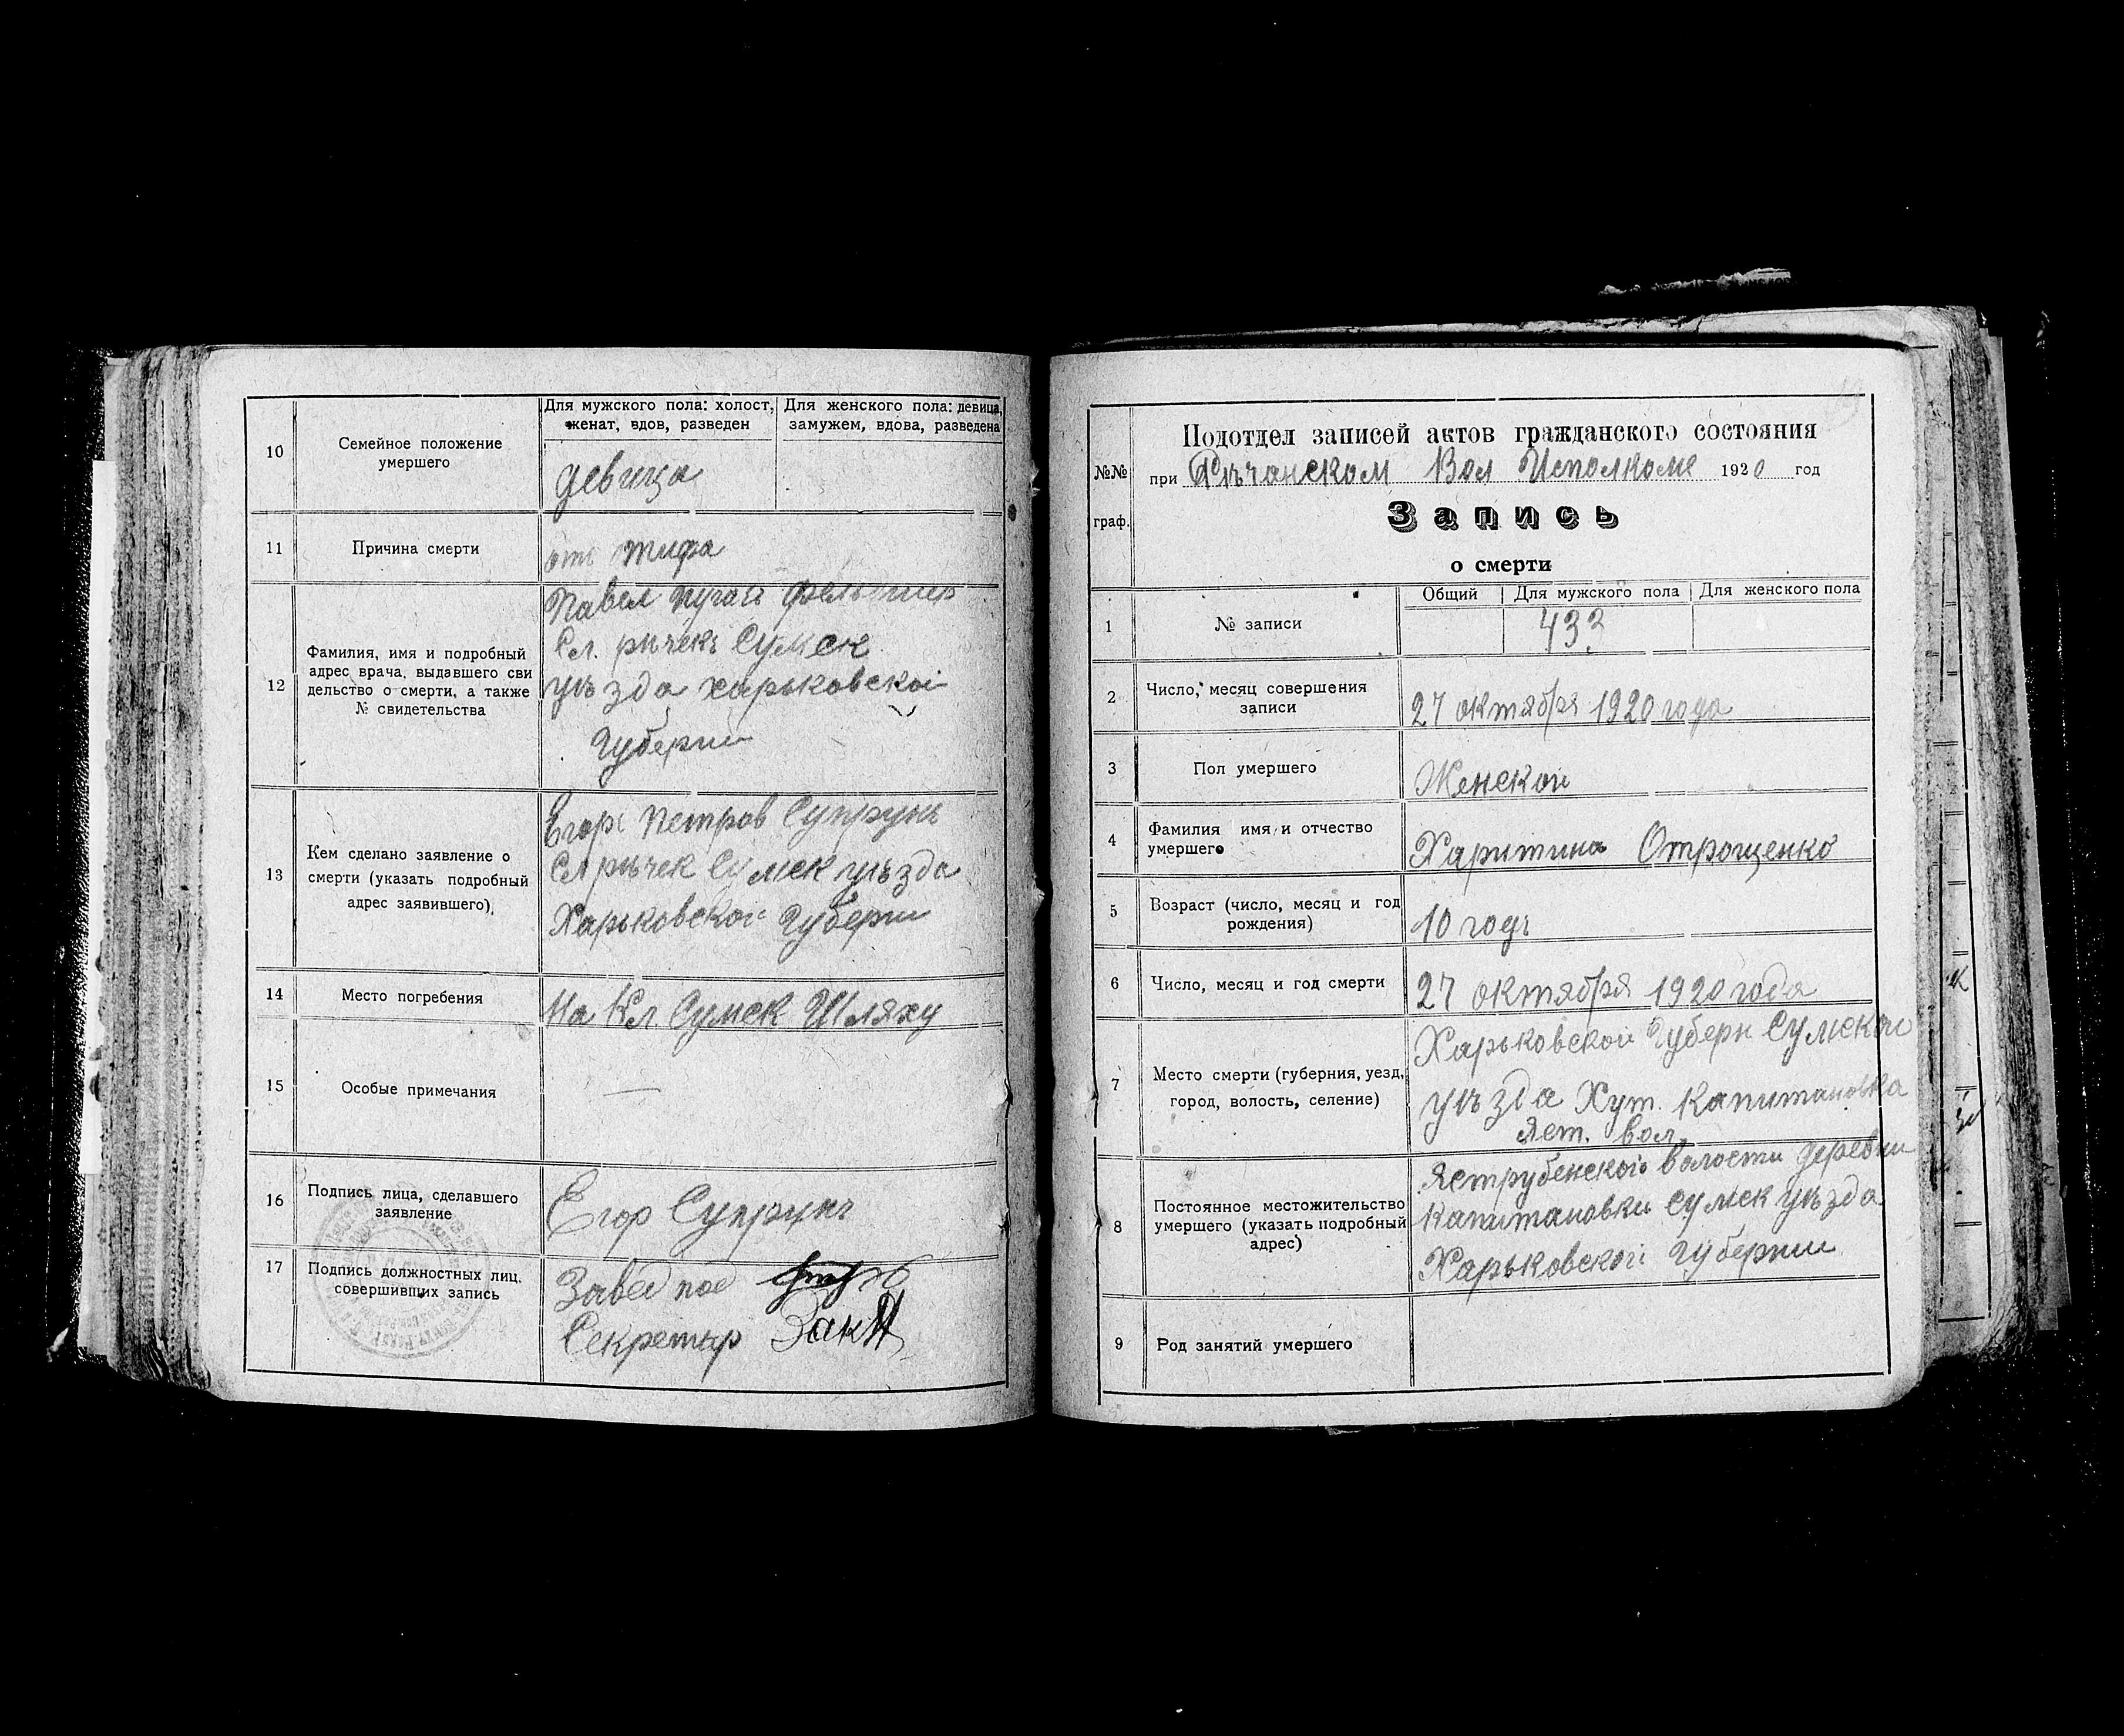 10
Семейное положение
умершего
Для мужского пола: холост,
женат, вдов, разведен
Для женского пола: девица,
замужем, вдова, разведена
девица
11
Причина смерти
отъ тифа
12
Фамилия, имя и подробный
адрес врача, выдавшего сви
дельство о смерти, а также
№ свидетельства
Павел Пугач фельдшер
Сл. рѣчекъ Сумск
уѣзда харьковской
Губерни
13
Кем сделано заявление о
смерти (указать подробный
адрес заявившего).
Егоръ Петров Супрунъ
Сл рѣчек Сумск уѣзда
Харьковской Губерни
14
Место погребения
На Кл Сумск Шляху
15
Особые примечания
—
16
Подпись лица, сделавшего
заявление
Егор Супрунъ
17
Подпись должностных лиц,
совершивших запись
Завед под
Секретар
№№
граф.
Подотдел записей актов гражданского состояния
при Рѣчанском Вол Исполкоме 1920 год
Запись
о смерти
1
№ записи
Общий
Для мужского пола
Для женского пола
433
2
Число, месяц совершения
записи
27 октября 1920 года
3
Пол умершего
Женской
4
Фамилия имя и отчество
умершего
Харитина Отрощенко
5
Возраст (число, месяц и год
рождения)
10 годъ
6
Число, месяц и год смерти
27 октября 1920 года
7
Место смерти (губерния, уезд,
город, волость, селение)
Харьковской Губерн Сумской
уѣзда Хут. Капитановка
Яст. вол.
8
Постоянное местожительство
умершего (указать подробный
адрес)
Яструбенской волости деревни
Капитановки Сумск уѣзда
Харьковской Губернии
9
Род занятий умершего